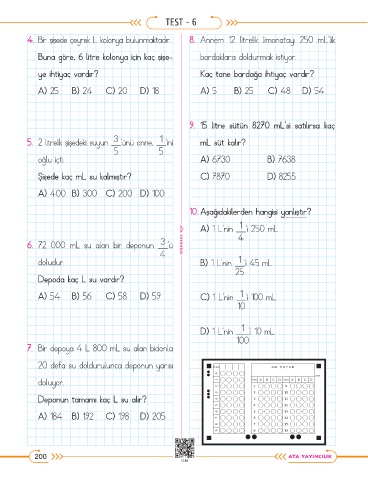 TEST - 6
4. Bir şişede çeyrek L kolonya bulunmaktadır.
Buna göre, 6 litre kolonya için kaç şişe-
ye ihtiyaç vardır?
A) 25 B) 24 C) 20 D) 18
5. 2 litrelik şişedeki suyun 3/5'ünü anne, 1/5'ini
oğlu içti.
Şişede kaç mL su kalmıştır?
A) 400 B) 300 C) 200 D) 100
6. 72 000 mL su alan bir deponun 3/4'ü
doludur.
Depoda kaç L su vardır?
A) 54 B) 56 C) 58 D) 59
7. Bir depoya 4 L 800 mL su alan bidonla
20 defa su doldurulunca deponun yarısı
doluyor.
Deponun tamamı kaç L su alır?
A) 184 B) 192 C) 198 D) 205
8. Annem 12 litrelik limonatayı 250 mL'lik
bardaklara doldurmak istiyor.
Kaç tane bardağa ihtiyaç vardır?
A) 5 B) 25 C) 48 D) 54
9. 15 litre sütün 8270 mL'si satılırsa kaç
mL süt kalır?
A) 6730 B) 7638
C) 7870 D) 8255
10. Aşağıdakilerden hangisi yanlıştır?
A) 1 L'nin 1/4'i 250 mL
B) 1 L'nin 1/25'i 45 mL
C) 1 L'nin 1/10'i 100 mL
D) 1 L'nin 1/100'i 10 mL
200
ATA YAYINCILIK